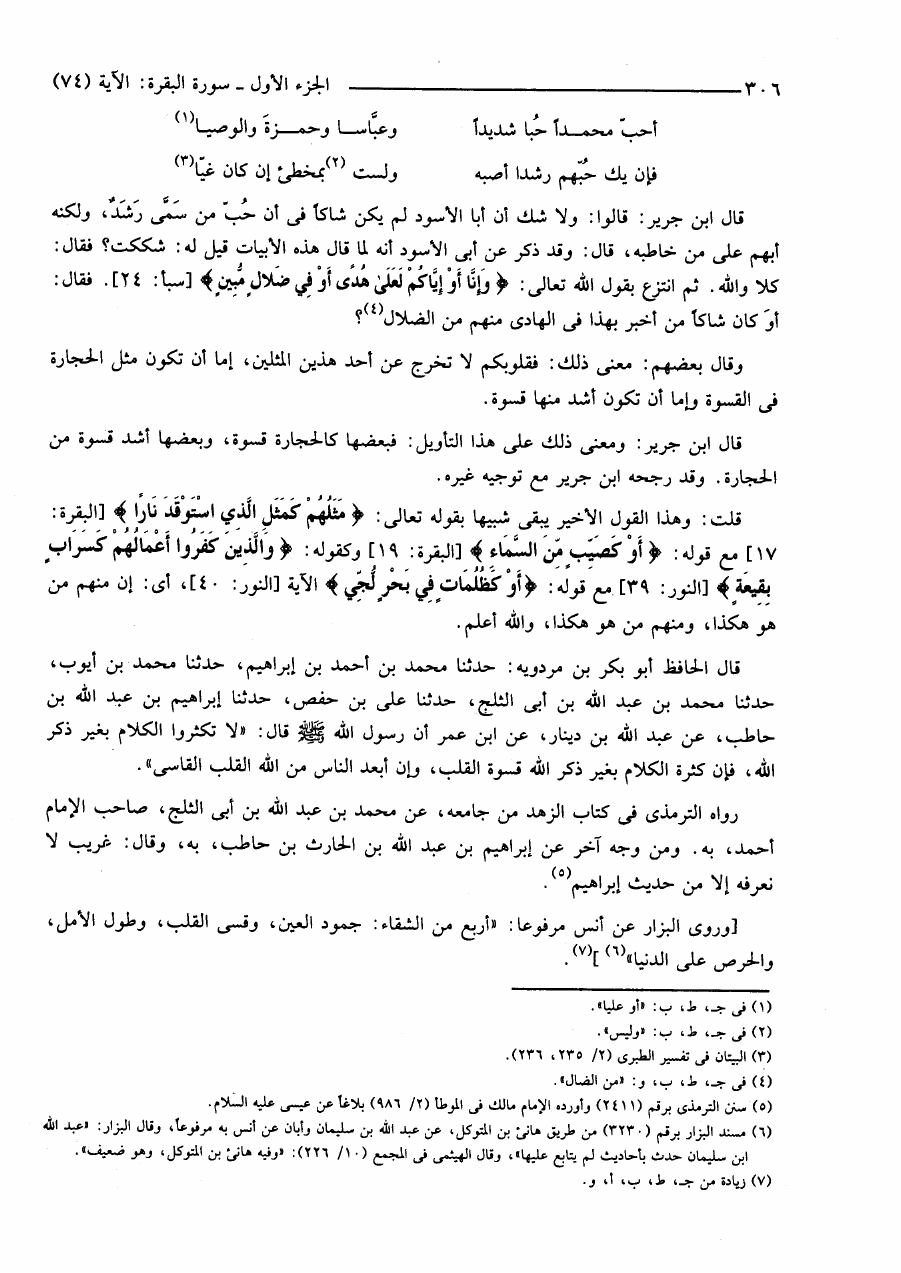 ٣٠٦ الجزء الأول ـ سورة البقرة: الآية (٧٤)
أحبّ محمداً حُبا شديداً وعبَّاسا وحمزةَ والوصيا(١)
فإن يك حُبّهم رشدا أصبه ولست (٢)بمخطئ إن كان غيّا(٣)
قال ابن جرير: قالوا: ولا شك أن أبا الأسود لم يكن شاكاً فى أن حُبّ من سَمَّى رَشَدٌ، ولكنه
أبهم على من خاطبه، قال: وقد ذكر عن أبى الأسود أنه لما قال هذه الأبيات قيل له: شككت؟ فقال:
كلا والله. ثم انتزع بقول الله تعالى: ﴿ وَإِنَّا أَوْ إِيَّاكُمْ لَعَلَىٰ هُدًى أَوْ فِي ضَلالٍ مُّبِينٍ ﴾ [سبأ: ٢٤]. فقال:
أوَ كان شاكاً من أخبر بهذا فى الهادى منهم من الضلال(٤)؟
وقال بعضهم: معنى ذلك: فقلوبكم لا تخرج عن أحد هذين المثلين، إما أن تكون مثل الحجارة
فى القسوة وإما أن تكون أشد منها قسوة.
قال ابن جرير: ومعنى ذلك على هذا التأويل: فبعضها كالحجارة قسوة، وبعضها أشد قسوة من
الحجارة. وقد رجحه ابن جرير مع توجيه غيره.
قلت: وهذا القول الأخير يبقى شبيها بقوله تعالى: ﴿ مَثَلُهُمْ كَمَثَلِ الَّذِي اسْتَوْقَدَ نَارًا ﴾ [البقرة:
١٧] مع قوله: ﴿ أَوْ كَصَيِّبٍ مِّنَ السَّمَاءِ ﴾ [البقرة: ١٩] وكقوله: ﴿ وَالَّذِينَ كَفَرُوا أَعْمَالُهُمْ كَسَرَابٍ
بِقِيعَةٍ ﴾ [النور: ٣٩] مع قوله: ﴿أَوْ كَظُلُمَاتٍ فِي بَحْرٍ لُّجِّيٍّ ﴾ الآية [النور: ٤٠]، أى: إن منهم من
هو هكذا، ومنهم من هو هكذا، والله أعلم.
قال الحافظ أبو بكر بن مردويه: حدثنا محمد بن أحمد بن إبراهيم، حدثنا محمد بن أيوب،
حدثنا محمد بن عبد الله بن أبى الثلج، حدثنا على بن حفص، حدثنا إبراهيم بن عبد الله بن
حاطب، عن عبد الله بن دينار، عن ابن عمر أن رسول الله ﷺ قال: «لا تكثروا الكلام بغير ذكر
الله، فإن كثرة الكلام بغير ذكر الله قسوة القلب، وإن أبعد الناس من الله القلب القاسى».
رواه الترمذى فى كتاب الزهد من جامعه، عن محمد بن عبد الله بن أبى الثلج، صاحب الإمام
أحمد، به. ومن وجه آخر عن إبراهيم بن عبد الله بن الحارث بن حاطب، به، وقال: غريب لا
نعرفه إلا من حديث إبراهيم(٥).
[وروى البزار عن أنس مرفوعا: «أربع من الشقاء: جمود العين، وقسى القلب، وطول الأمل،
والحرص على الدنيا»(٦) ](٧).
(١) فى جـ، ط، ب: «أو عليا».
(٢) فى جـ، ط، ب: «وليس».
(٣) البيتان فى تفسير الطبرى (٢/ ٢٣٥، ٢٣٦).
(٤) فى جـ، ط، ب، و: «من الضال».
(٥) سنن الترمذى برقم (٢٤١١) وأورده الإمام مالك فى الموطأ (٢/ ٩٨٦) بلاغاً عن عيسى عليه السلام.
(٦) مسند البزار برقم (٣٢٣٠) من طريق هانئ بن المتوكل، عن عبد الله بن سليمان وأبان عن أنس به مرفوعاً، وقال البزار: «عبد الله
ابن سليمان حدث بأحاديث لم يتابع عليها»، وقال الهيثمى فى المجمع (١٠/ ٢٢٦): «وفيه هانئ بن المتوكل، وهو ضعيف».
(٧) زيادة من جـ، ط، ب، أ، و.